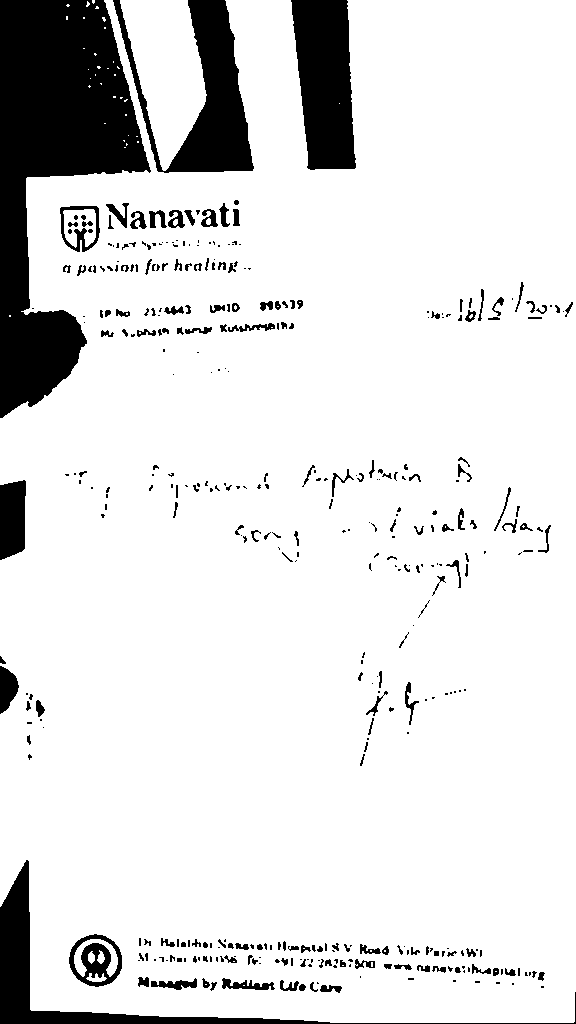 Nanavati
Super Speciality Hospital
a passion for healing...
IP No 21/4643 UHID 896539
Mr. Subhash Kumar Kulshreshtha
Date 16/5/2021
Inj Liposomal Amphotericin B
50mg vials/day
(300mg)
Dr. Balabhai Nanavati Hospital S.V. Road, Vile Parle (W)
Mumbai 400 056 Tel +91 22 26267500 www.nanavatihospital.org
Managed by Radiant Life Care